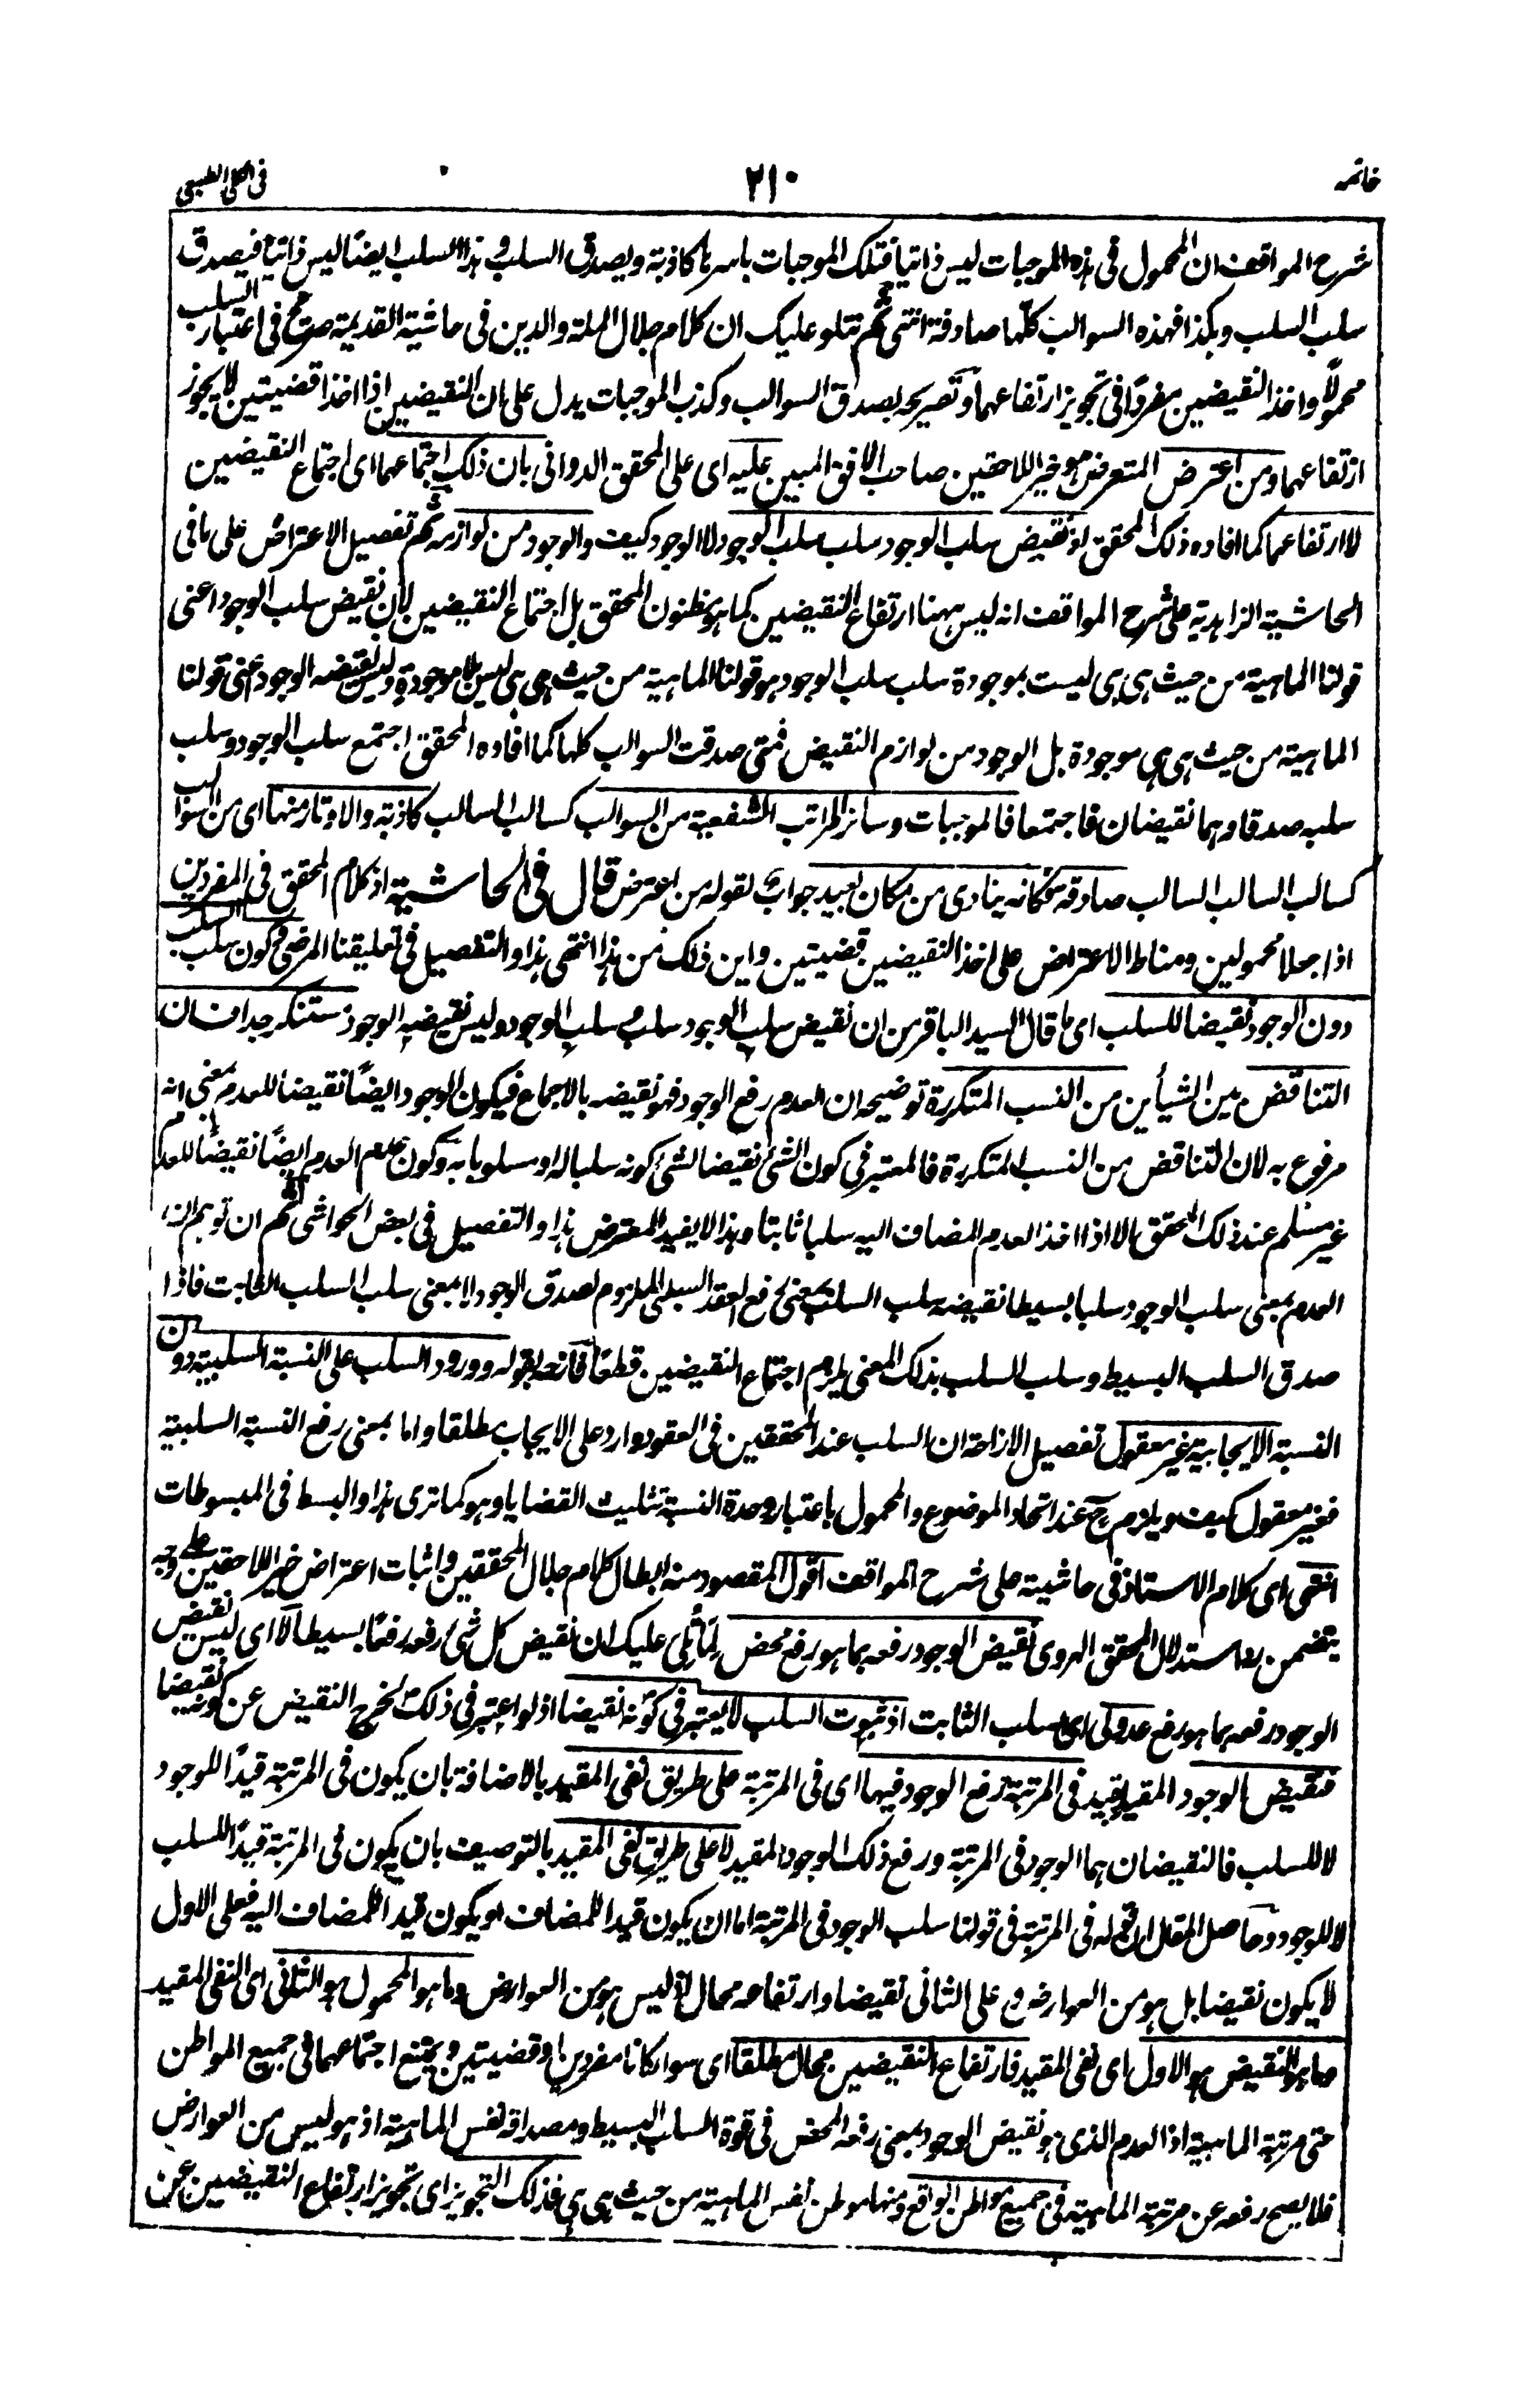 خاتمه ٢١٠ في الكلي الطبيعي
شرح المواقف ان المحمول في هذه الموجبات ليس ذاتيا فتلك الموجبات باسرها كاذبة ويصدق السلب و هذا السلب ايضا ليس ذاتيا فيصدق
سلب السلب وهكذا فهذه السوالب كلها صادقة انتهى ثم نتلو عليك ان كلام جلال الملة والدين في حاشية القديمة صريح في اعتبار السلب
محمولا واخذ النقيضين مفردا في تجويز ارتفاعهما وتصريحه بصدق السوالب وكذب الموجبات يدل على ان النقيضين اذا اخذا قضيتين لا يجوز
ارتفاعهما ومن اعترض المتعرض هو خير اللاحقين صاحب الافق المبين عليه اى على المحقق الدوانى بان ذلك اجتماعهما اى اجتماع النقيضين
لا ارتفاعهما كما افاده ذلك المحقق اذ نقيض سلب الوجود سلب سلب الوجود لا الوجود كيف والوجود من لوازمه ثم تفصيل الاعتراض على ما فى
الحاشية الزاهدية على شرح المواقف انه ليس ههنا ارتفاع النقيضين كما هو مظنون المحقق بل اجتماع النقيضين لان نقيض سلب الوجود اعنى
قولنا الماهية من حيث هى هى ليست بموجودة سلب سلب الوجود هو قولنا الماهية من حيث هى هى ليس بلا موجودة وليس نقيضه الوجود اعنى قولنا
الماهية من حيث هى هى موجودة بل الوجود من لوازم النقيض فمتى صدقت السوالب كلها كما افاده المحقق اجتمع سلب الوجود وسلب
سلبه صدقا وهما نقيضان فاجتمعا فالموجبات وسائر المراتب الشفعية من السوالب كسالب السالب كاذبة والاوتار منها اى من السوالب
كسالب السالب السالب صادقة فكانه ينادى من مكان بعيد جواب لقوله من اعترض قال فى الحاشية اذ كلام المحقق فى المفردين
اذا جعلا محمولين ومناط الاعتراض على اخذ النقيضين قضيتين واين ذلك من هذا انتهى هذا والتفصيل فى تعليقنا المرضى وكون سلب السلب
دون الوجود نقيضا للسلب اى ما قال السيد الباقر من ان نقيض سلب الوجود سلب سلب الوجود وليس نقيضه الوجود مستنكر جدا فان
التناقض بين الشيأين من النسب المتكررة توضيحه ان العدم رفع الوجود فهو نقيضه بالاجماع فيكون الوجود ايضا نقيضا للعدم بمعنى انه
مرفوع به لان التناقض من النسب المتكررة فالمعتبر فى كون الشئ نقيضا لشئ كونه سلبا له او مسلوبا به وكون عدم العدم ايضا نقيضا للعدم
غير مسلم عند ذلك المحقق الا اذا اخذ العدم المضاف اليه سلبا ثابتا وهذا لا يفيد المعترض هذا والتفصيل فى بعض الحواشى ثم ان توهم ان
العدم بمعنى سلب الوجود سلبا بسيطا نقيضه سلب السلب بمعنى رفع العقد السلبى الملزوم لصدق الوجود لا بمعنى سلب السلب الثابت فاذا
صدق السلب البسيط وسلب السلب بذلك المعنى يلزم اجتماع النقيضين قطعا فازاحه بقوله وورود السلب على النسبة السلبية دون
النسبة الايجابية غير معقول تفصيل الازاحة ان السلب عند المحققين فى العقود وارد على الايجاب مطلقا واما بمعنى رفع النسبة السلبية
فغير معقول كيف ويلزم ح عند اتحاد الموضوع والمحمول باعتبار وحدة النسبة تثليث القضايا وهو كما ترى هذا والبسط فى المبسوطات
انتهى اى كلام الاستاذ فى حاشيته على شرح المواقف اقول المقصود منه ابطال كلام جلال المحققين واثبات اعتراض خير اللاحقين على وجه
يتضمن رد استدلال المحقق الهروى نقيض الوجود رفعه بما هو رفع محض لما تلى عليك ان نقيض كل شئ رفعه رفعا بسيطا لا اى ليس نقيض
الوجود رفعه بما هو رفع عدولى اى سلب الثابت اذ ثبوت السلب لا يعتبر فى كونه نقيضا اذ لو اعتبر فى ذلك لخرج النقيض عن كونه نقيضا
فنقيض الوجود المقيد بقيد فى المرتبة رفع الوجود فيها اى فى المرتبة على طريق نفى المقيد بالاضافة بان يكون فى المرتبة قيدا للوجود
لا للسلب فالنقيضان هما الوجود فى المرتبة ورفع ذلك الوجود المقيد لا على طريق نفى المقيد بالتوصيف بان يكون فى المرتبة قيدا للسلب
لا للوجود وحاصل المقال ان قوله فى المرتبة فى قولنا سلب الوجود فى المرتبة اما ان يكون قيدا للمضاف او يكون قيدا للمضاف اليه فعلى الاول
لا يكون نقيضا بل هو من العوارض وعلى الثانى نقيضا وارتفاعه محال اذ ليس هو من العوارض وما هو المحمول هو الثانى اى النفى المقيد
وما هو النقيض هو الاول اى نفى المقيد فارتفاع النقيضين محال مطلقا اى سواء كانا مفردين او قضيتين ويمتنع اجتماعهما فى جميع المواطن
حتى مرتبة الماهية اذ العدم الذى هو نقيض الوجود بمعنى رفعه المحض فى قوة السلب البسيط ومصداقه نفس الماهية اذ هو ليس من العوارض
فلا يصح رفعه عن مرتبة الماهية فى جميع مواطن الواقع ومنها موطن نفس الماهية من حيث هى هى فذلك التجويز اى تجويز ارتفاع النقيضين عن